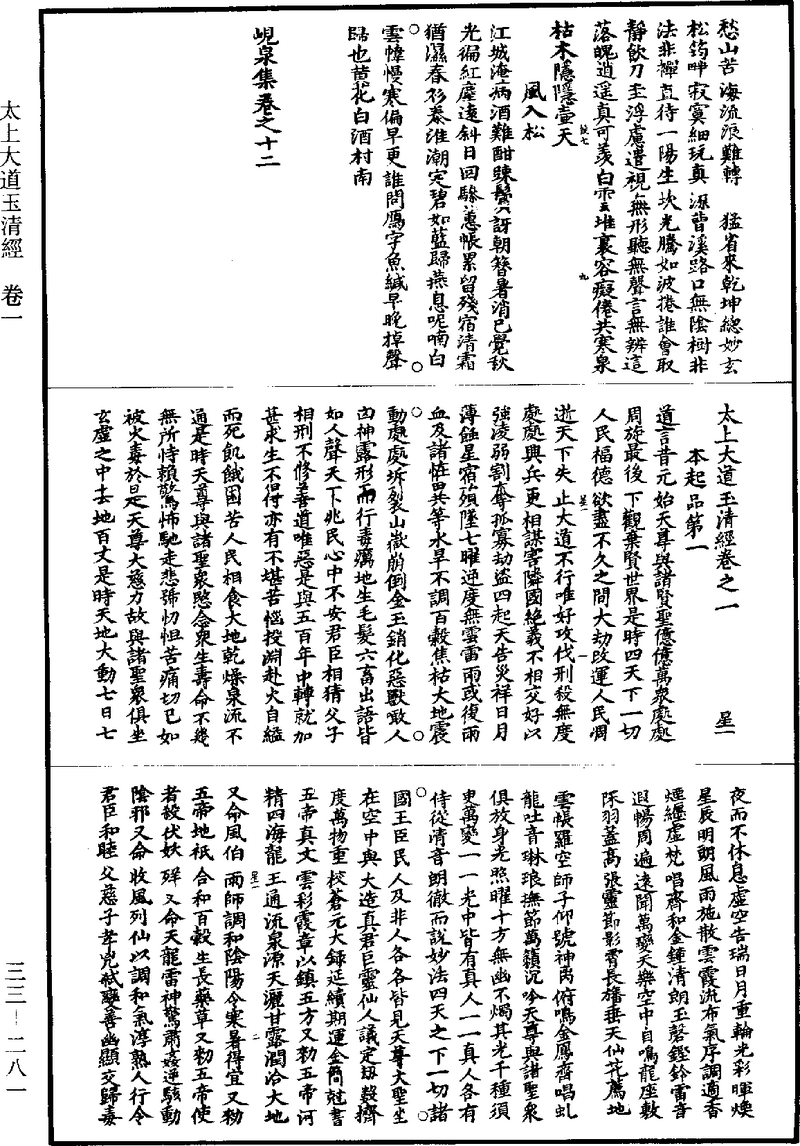 太上大道玉清經 卷一
三三—二八一
愁山苦海流浪難轉 猛省來乾坤總妙玄
松筠呷寂寞細玩真源曹溪路口無陰樹非
法非禪直待一陽生坎光騰如波捲誰會取
靜飲刀圭浮慮遣視無形聽無聲言無辨這
落魄逍遥真可羡白雲堆裏容癡倦共寒泉
枯木隱隱壺天
風入松
江城淹病酒難酣踈鬢訝朝簪暑消已覺秋
光徧紅塵遠斜日回驂蕙帳累留殘宿清霜
猶濕春衫秦淮潮定碧如藍歸燕息呢喃白
雲幃幔寒偏早更誰問鴈字魚緘早晚掉聲
歸也黄花白酒村南
峴泉集卷之十二
太上大道玉清經卷之一 星一
本起品第一
道言昔元始天尊與諸賢聖億億萬衆處處
周旋最後下觀棄賢世界是時四天下一切
人民福德欲盡不久之間大劫改運人民凋
逝天下失止大道不行唯好攻伐刑殺無度
處處興兵更相謀害隣國絶義不相交好以
強凌弱割奪孤寡劫盗四起天告災祥日月
薄蝕星宿殞墜七曜逆度無雲雷雨或復雨
血及諸怪異等水旱不調百穀焦枯大地震
動處處坼裂山嶽崩倒金玉銷化惡獸噉人
凶神露形而行毒癘地生毛髮六畜出語皆
如人聲天下兆民心中不安君臣相猜父子
相刑不修善道唯惡是與五百年中轉就加
甚求生不得亦有不堪苦惱投淵赴火自縊
而死飢餓困苦人民相食大地乾燥泉流不
通是時天尊與諸聖衆愍念衆生壽命不幾
無所恃賴驚怖馳走悲號忉怛苦痛切已如
被火毒於是天尊大慈力故與諸聖衆俱坐
玄虚之中去地百丈是時天地大動七日七
夜而不休息虚空告瑞日月重輪光彩暉煥
星辰明朗風雨施散雲霞流布氣序調適香
煙纏虚梵唱齊和金鍾清朗玉磬鏗鈴雷音
遐暢周遍遠聞萬變天樂空中自鳴龍座敷
陳羽蓋高張靈節影霄長旛垂天仙花薦地
雲帳羅空師子仰號神禽俯鳴金鳳齊唱虬
龍吐音琳琅撫節萬籟沉吟天尊與諸聖衆
俱放身光照曜十方無幽不燭其光千種須
臾萬變一一光中皆有真人一一真人各有
侍從清音朗徹而說妙法四天之下一切諸
國王臣民人及非人各各皆見天尊大聖坐
在空中與大造真君巨靈仙人議定劫數擠
度萬物重校蒼元大錄延續期運金簡尅書
五帝真文雲彩霞章以鎮五方又勑五帝河
精四海龍王通流泉源天灑甘露潤洽大地
又命風伯雨師調和陰陽令寒暑得宜又勑
五帝地祇合和百穀生長藥草又勑五帝使
者殺伏妖 又命天龍雷神驚肅姦逆駭動
陰邪又命收風列仙以調和氣淳熟人行令
君臣和睦父慈子孝兇弒變善幽顯交歸毒